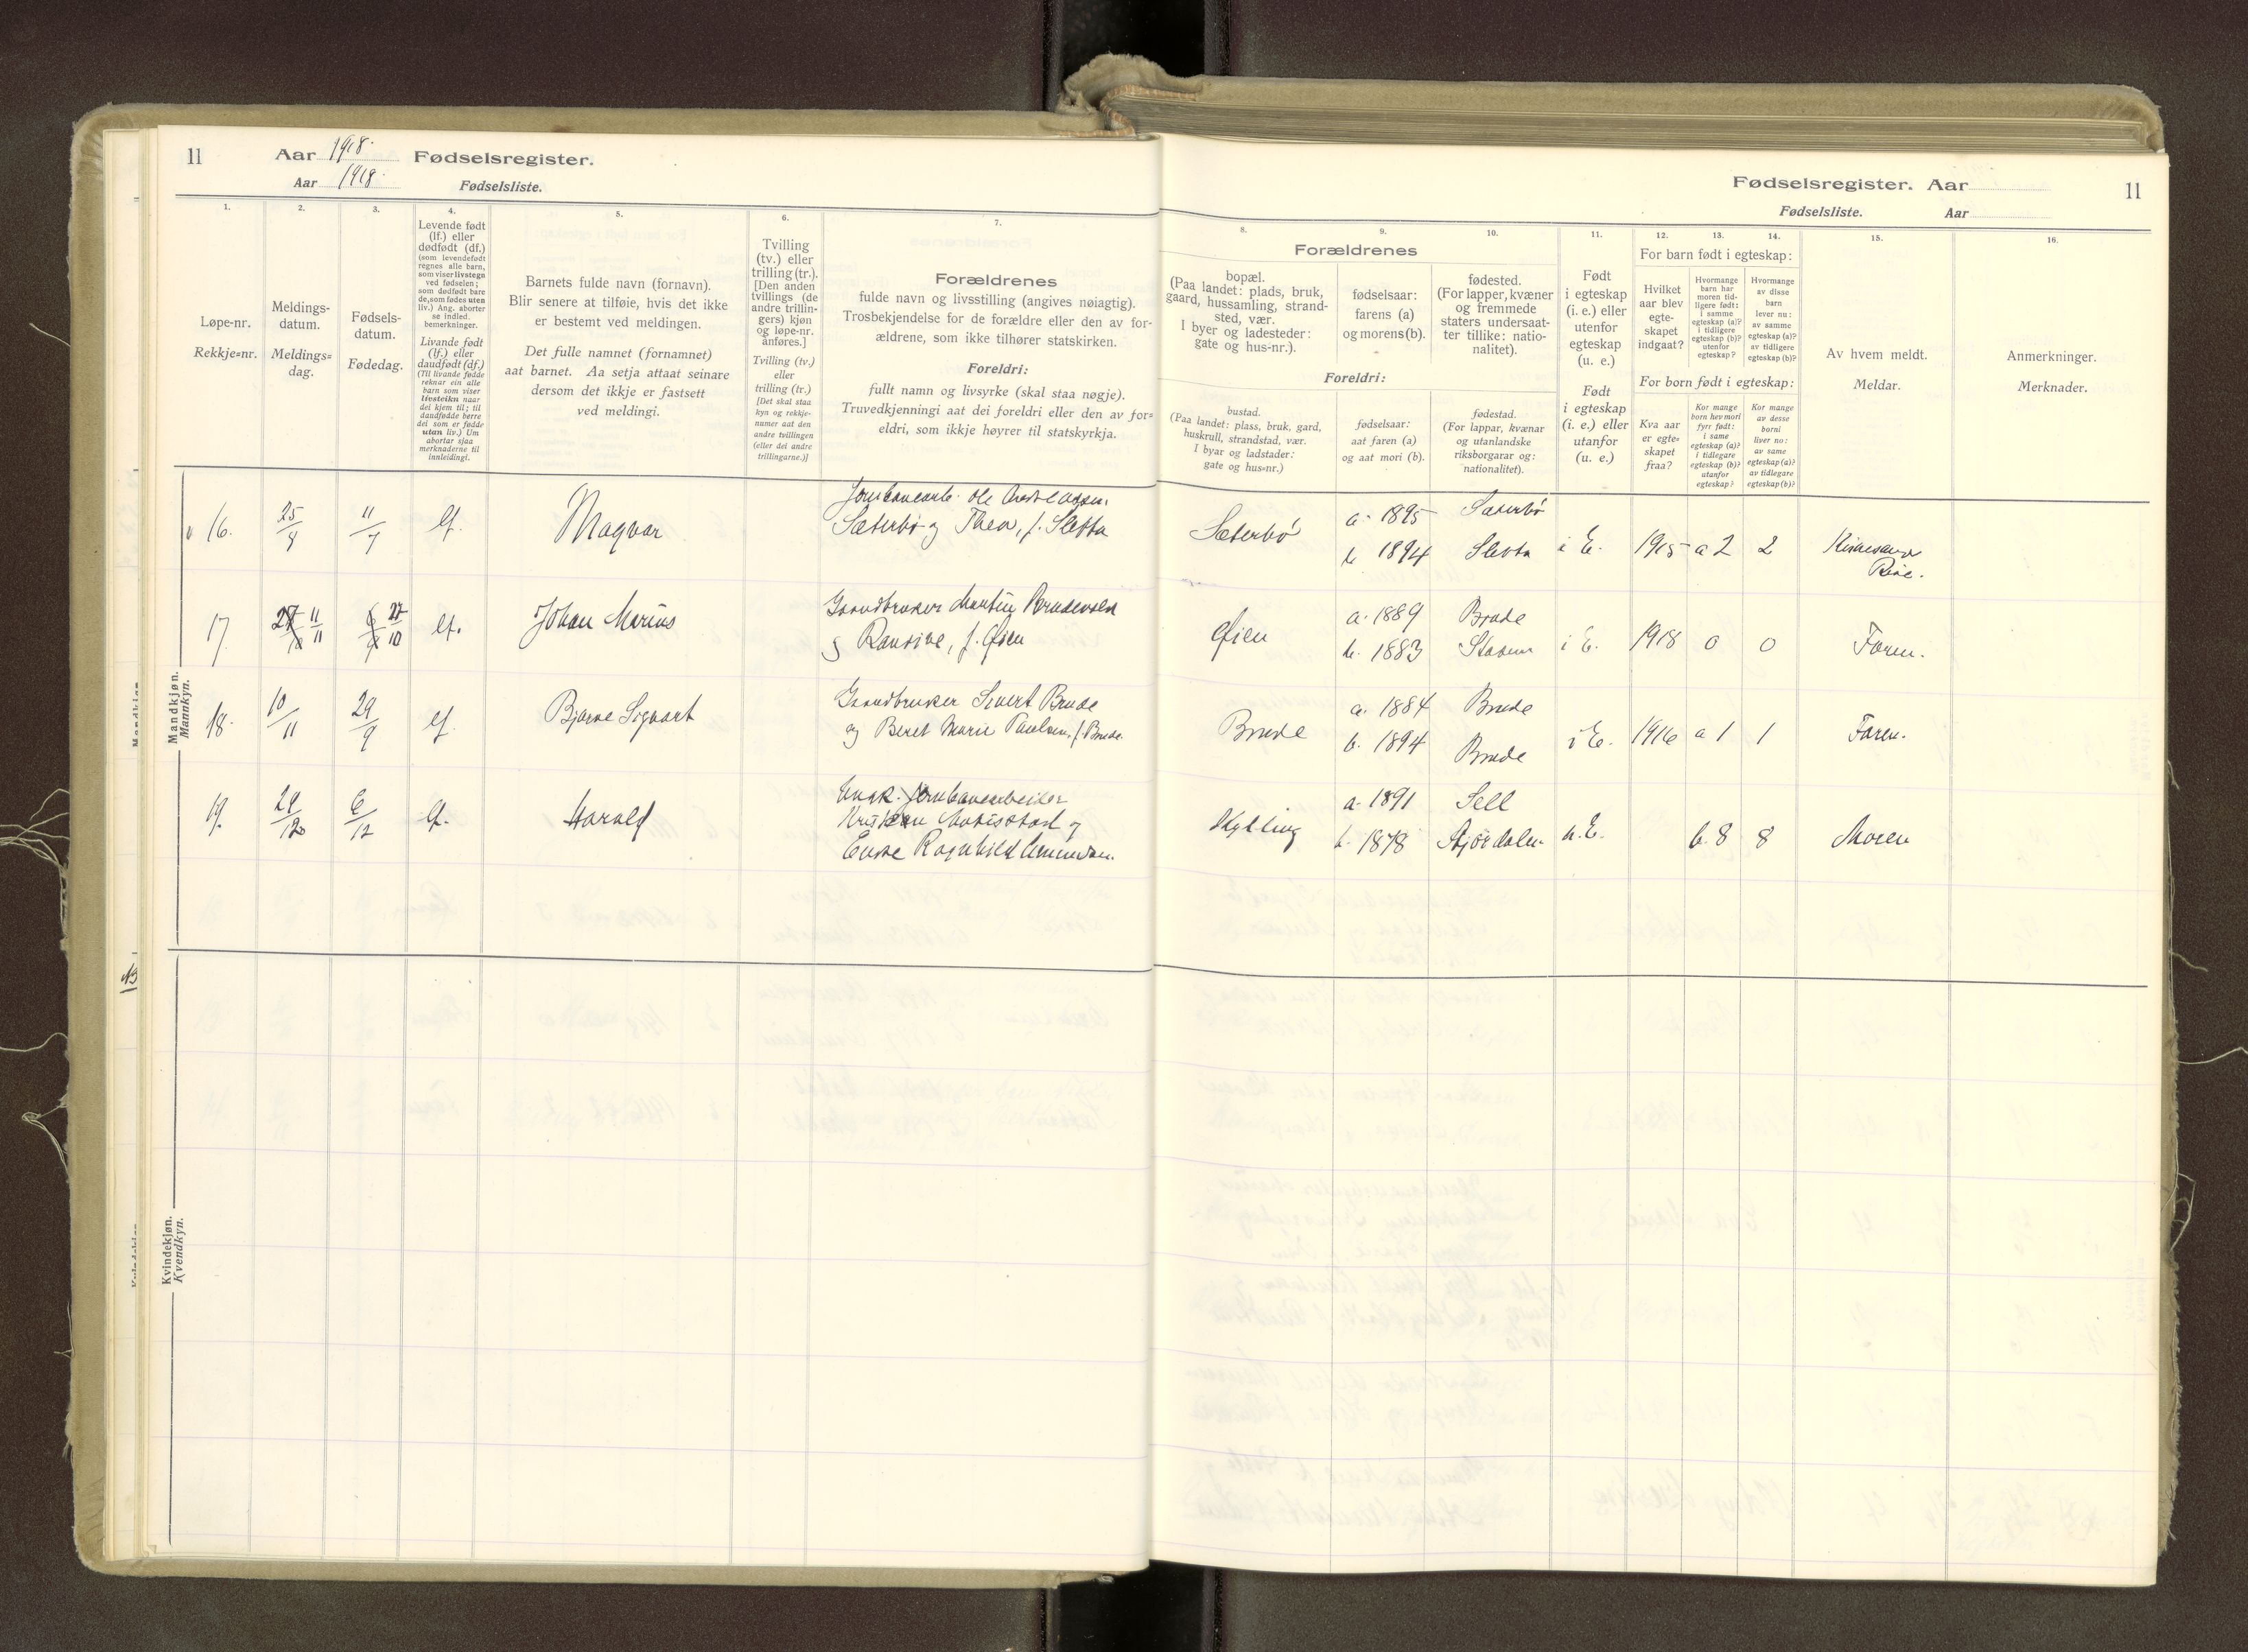 11 Aar 1918. Fødselsregister.
Aar 1918. Fødselsliste.
Fødselsregister. Aar 11
Fødselsliste. Aar
1. 2. 3. 4. 5. 6. 7.
Løpe-nr.
Rekkje=nr.
Meldings-
datum.
Meldings=
dag.
Fødsels-
datum.
Fødedag.
Levende født
(lf.) eller
dødfødt (df.)
(som levendefødt
regnes alle barn,
som viser livstegn
ved fødselen;
som dødfødt bare
de, som fødes uten
liv.) Ang. aborter
se indled.
bemerkninger.
Livande født
(lf.) eller
daudfødt (df.)
(Til livande fødde
reknar ein alle
barn som viser
livsteikn naar
dei kjem til; til
daudfødde berre
dei som er fødde
utan liv.) Um
abortar sjaa
merknaderne til
innleidingi.
Barnets fulde navn (fornavn).
Blir senere at tilføie, hvis det ikke
er bestemt ved meldingen.
Det fulle namnet (fornamnet)
aat barnet. Aa setja attaat seinare
dersom det ikkje er fastsett
ved meldingi.
Tvilling
(tv.) eller
trilling (tr.).
[Den anden
tvillings (de
andre trillin-
gers) kjøn
og løpe-nr.
anføres.]
Tvilling (tv.)
eller
trilling (tr.)
[Det skal staa
kyn og rekkje-
numer aat den
andre tvillingen
(eller dei andre
trillingarne.)]
Forældrenes
fulde navn og livsstilling (angives nøiagtig).
Trosbekjendelse for de forældre eller den av for-
ældrene, som ikke tilhører statskirken.
Foreldri:
fullt namn og livsyrke (skal staa nøgje).
Truvedkjenningi aat dei foreldri eller den av for=
eldri, som ikkje høyrer til statskyrkja.
8. 9. 10. 11. 12. 13. 14. 15. 16.
Forældrenes
bopæl.
(Paa landet: plads, bruk,
gaard, hussamling, strand-
sted, vær.
I byer og ladesteder:
gate og hus-nr.).
fødselsaar:
farens (a)
og morens (b).
fødested.
(For lapper, kvæner
og fremmede
staters undersaat-
ter tillike: natio-
nalitet).
Foreldri:
bustad.
(Paa landet: plass, bruk, gard,
huskrull, strandstad, vær.
I byar og ladstader:
gate og hus=nr.)
fødselsaar:
aat faren (a)
og aat mori (b).
fødestad.
(For lappar, kvænar
og utanlandske
riksborgarar og:
nationalitet).
Født
i egteskap
(i. e.) eller
utenfor
egteskap
(u. e.)
Født
i egteskap
(i. e.) eller
utanfor
egteskap
(u. e.)
For barn født i egteskap:
Hvilket
aar blev
egte-
skapet
indgaat?
Hvormange
barn har
moren tid-
ligere født:
i samme
egteskap (a)?
i tidligere
egteskap (b)?
utenfor
egteskap?
Hvormange
av disse
barn
lever nu:
av samme
egteskap (a)?
av tidligere
egteskap (b)?
For born født i egteskap:
Kva aar
er egte-
skapet
fraa?
Kor mange
born hev mori
fyrr født:
i same
egteskap (a)?
i tidlegare
egteskap (b)?
utanfor
egteskap?
Kor mange
av desse
borni
liver no:
av same
egteskap (a)?
av tidlegare
egteskap (b)?
Av hvem meldt.
Meldar.
Anmerkninger.
Merknader.
Mandkjøn.
Mannkyn.
16. 25/ 11/ lf. Magvar
Sæterbø og Thea, f. Sletta
Sæterbø a. 1895 Sæterbø
b. 1894 Sletta i E. 1915 a 2 2
17 11/11 27/10 lf. Johan Marius
Gaardbruker Martin
og f. Øien
Øien a. 1889 Brude
b. 1883 i E. 1918 0 0 Faren.
18. 10/11 29/9 lf. Bjarne Sigvart
Gaardbruker Sivert Brude
og Beret Marie Paulsen, f. Brude.
Brude a. 1884 Brude
b. 1894 Brude i E. 1916 a 1 1 Faren.
19. 29/12 6/12 lf. Harald
Ungk. Jernbanearbeider
og
Enke Ragnhild
Skylling a. 1891 Sell
b. 1878 Stjørdalen u. E. b. 8 8 Moren
Kvindekjøn.
Kvendkyn.